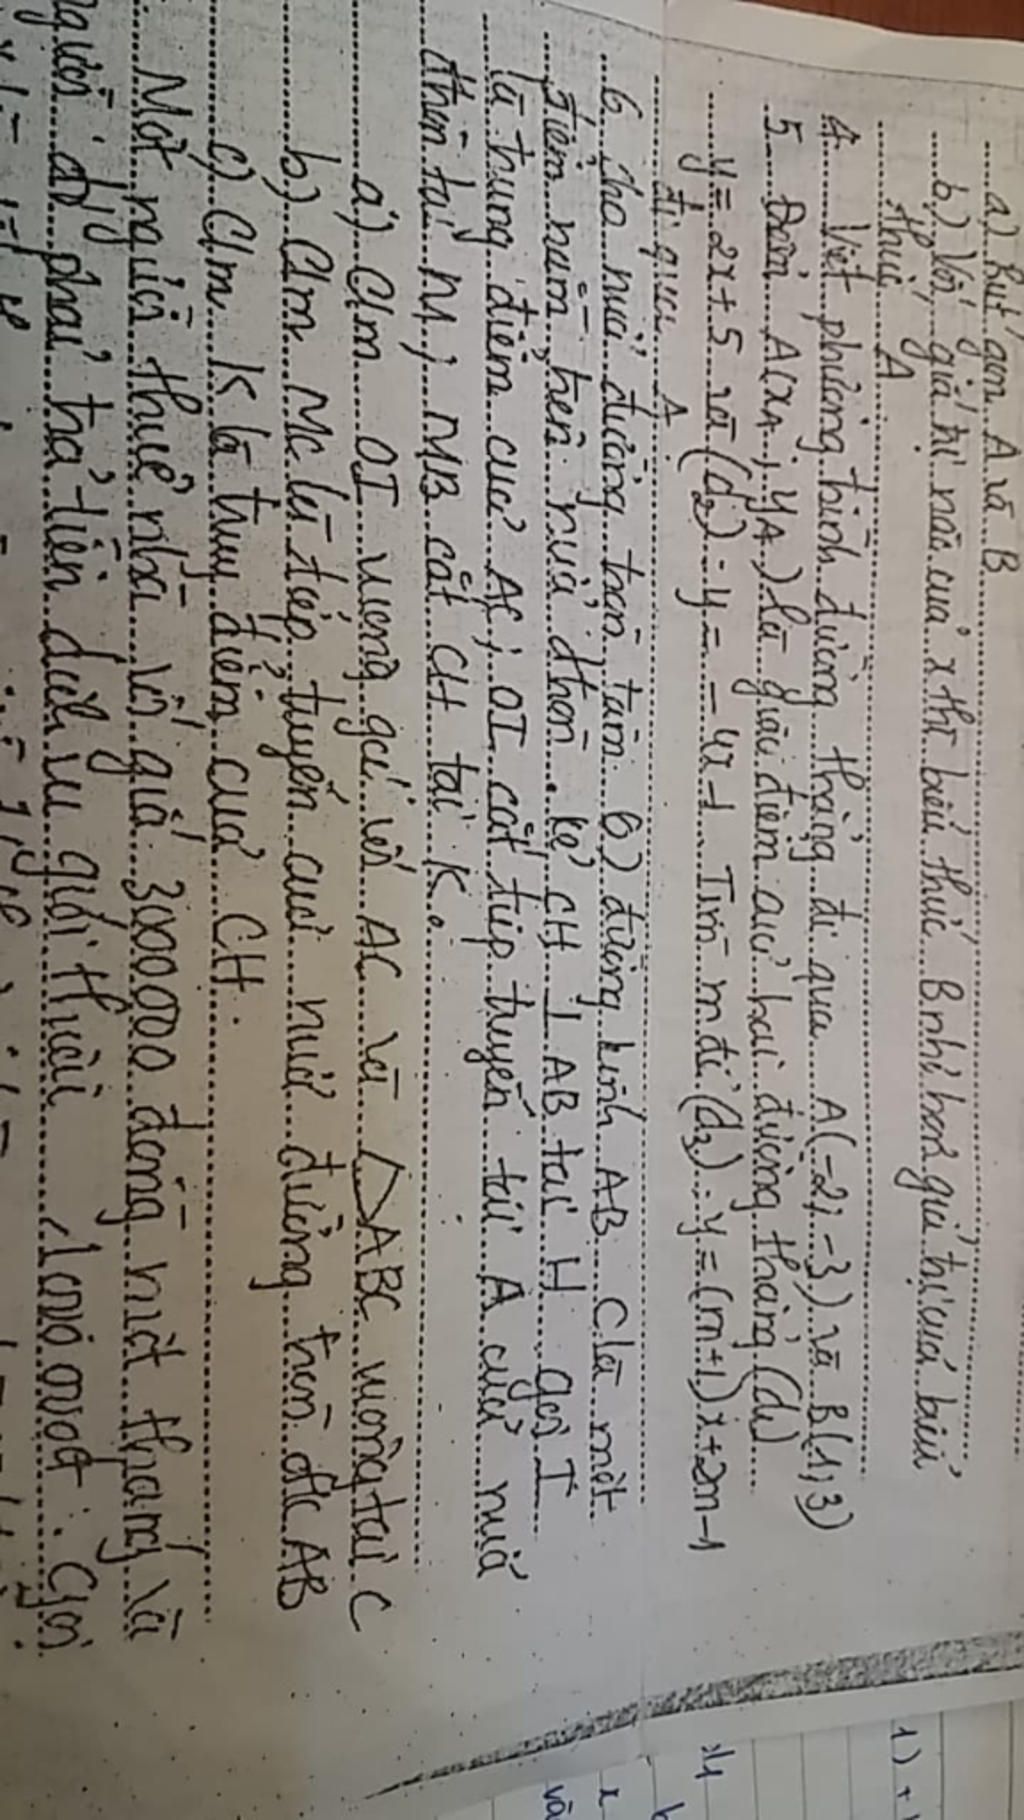 a) Rút gọn A và B
b) Với giá trị nào của x thì biểu thức B nhỏ hơn giá trị của biểu
thức A
4 Viết phương trình đường thẳng đi qua A(-2; -3) và B(1; 3)
5 Điểm A(xA; yA) là giao điểm của hai đường thẳng (d1)
y = 2x + 5 và (d2): y = -4x - 1. Tìm m để (d3): y = (m+1)x + 2m - 1
đi qua A
6 Cho nửa đường tròn tâm O đường kính AB C là một
điểm nằm trên nửa đtròn. Kẻ CH ⊥ AB tại H gọi I
là trung điểm của AC; OI cắt tiếp tuyến tại A của nửa
đtròn tại M; MB cắt CH tại K.
a) Cm OI vuông góc với AC và △ABC vuông tại C
b) Cm MC là tiếp tuyến của nửa đường tròn đk AB
c) Cm K là trung điểm của CH.
Một người thuê nhà với giá 3000.000 đồng một tháng và
người đó phải trả tiền dịch vụ giới thiệu Gọi